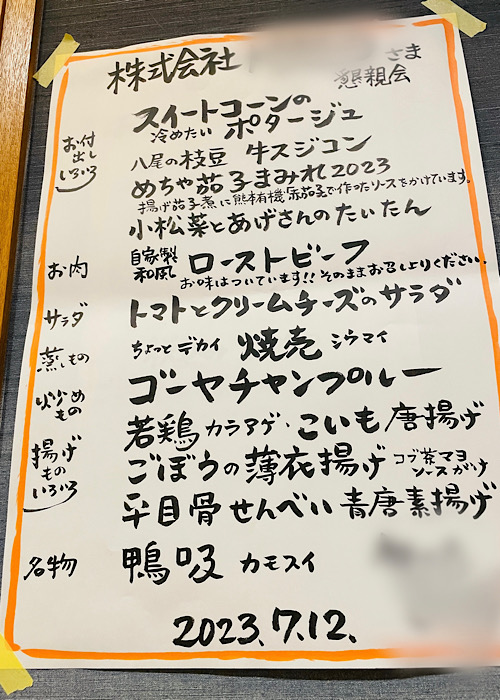 株式会社 さま
懇親会
お付出しいろいろ
スイートコーンの
冷めたい ポタージュ
八尾の枝豆 牛スジコン
めちゃ茄子まみれ2023
揚げ茄子煮に熊本有機・赤茄子で作ったソースをかけています。
小松菜とあげさんのたいたん
お肉 自家製和風 ローストビーフ
お味はついています!!そのままお召しよりください。
サラダ トマトとクリームチーズのサラダ
蒸しもの ちょっとデカイ 焼売 シウマイ
炒めもの ゴーヤチャンプルー
揚げものいろいろ
若鶏カラアゲ・こいも唐揚げ
ごぼうの薄衣揚げ コブ茶マヨソースがけ
平目骨せんべい 青唐素揚げ
名物 鴨吸 カモスイ
2023.7.12.